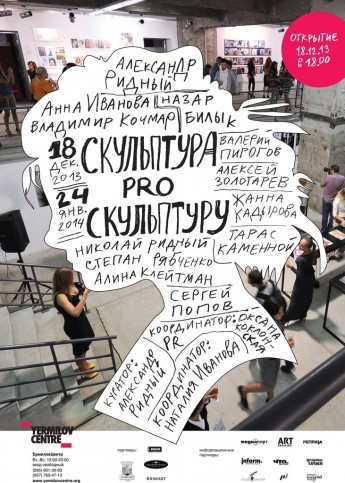 ОТКРЫТИЕ
18.12.13
В 18.00
АЛЕКСАНДР
РИДНЫЙ
АННА ИВАНОВА НАЗАР
ВЛАДИМИР КОЧМАР БИЛЫК
18
ДЕК.
2013
24
ЯНВ.
2014
СКУЛЬПТУРА
PRO
СКУЛЬПТУРУ
ВАЛЕРИЙ
ПИРОГОВ
АЛЕКСЕЙ
ЗОЛОТАРЕВ
ЖАННА
КАДЫРОВА
ТАРАС
КАМЕННОЙ
НИКОЛАЙ РИДНЫЙ
СТЕПАН РЯБЧЕНКО
АЛИНА КЛЕЙТМАН
СЕРГЕЙ
ПОПОВ
КООРДИНАТОР:
PR
ОКСАНА
КОКЛОН-
СКАЯ
КУРАТОР:
АЛЕКСАНДР
РИДНЫЙ
КООРДИНАТОР:
НАТАЛИЯ ИВАНОВА
YERMILOV
CENTRE
ЕрмиловЦентр
Вт.-Вс. 12.00-20.00
вход свободный
www.yermilovcentre.org
партнеры:
информационные
партнеры:
медиапорт
ART
РЕПРИЦА
inform.